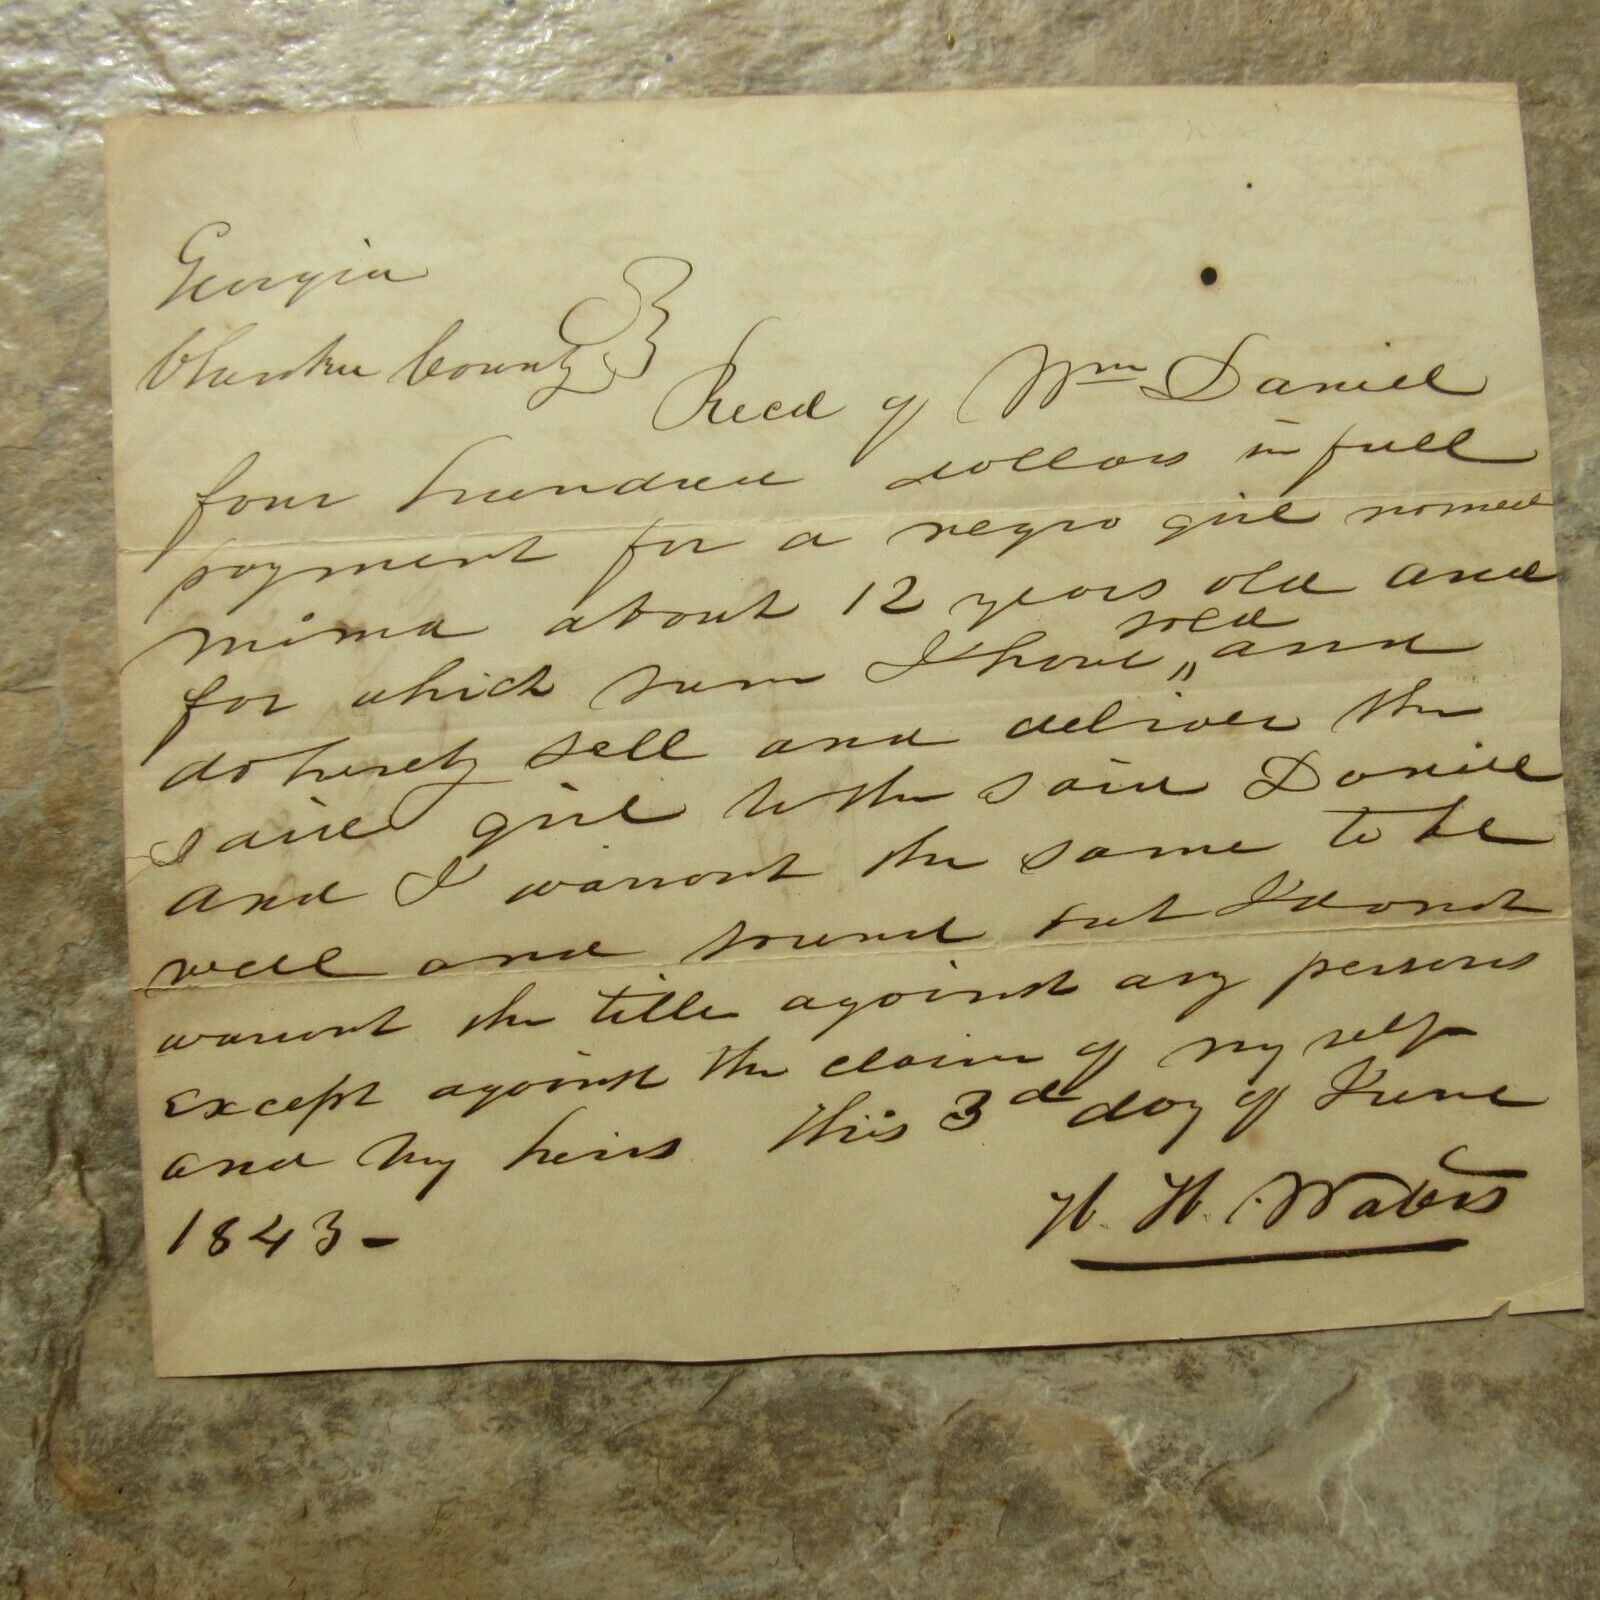 Georgia
County
Recd of Wm Daniel
four hundred dollars in full
payment for a negro girl named
Mima about 12 years old and
for which sum I have sold and
do hereby sell and deliver the
said girl to the said Daniel
and I warrant the same to be
well and sound but I do not
warrant the title against any persons
except against the claim of my self
and my heirs this 3d day of June
1843 - H. H. Waters